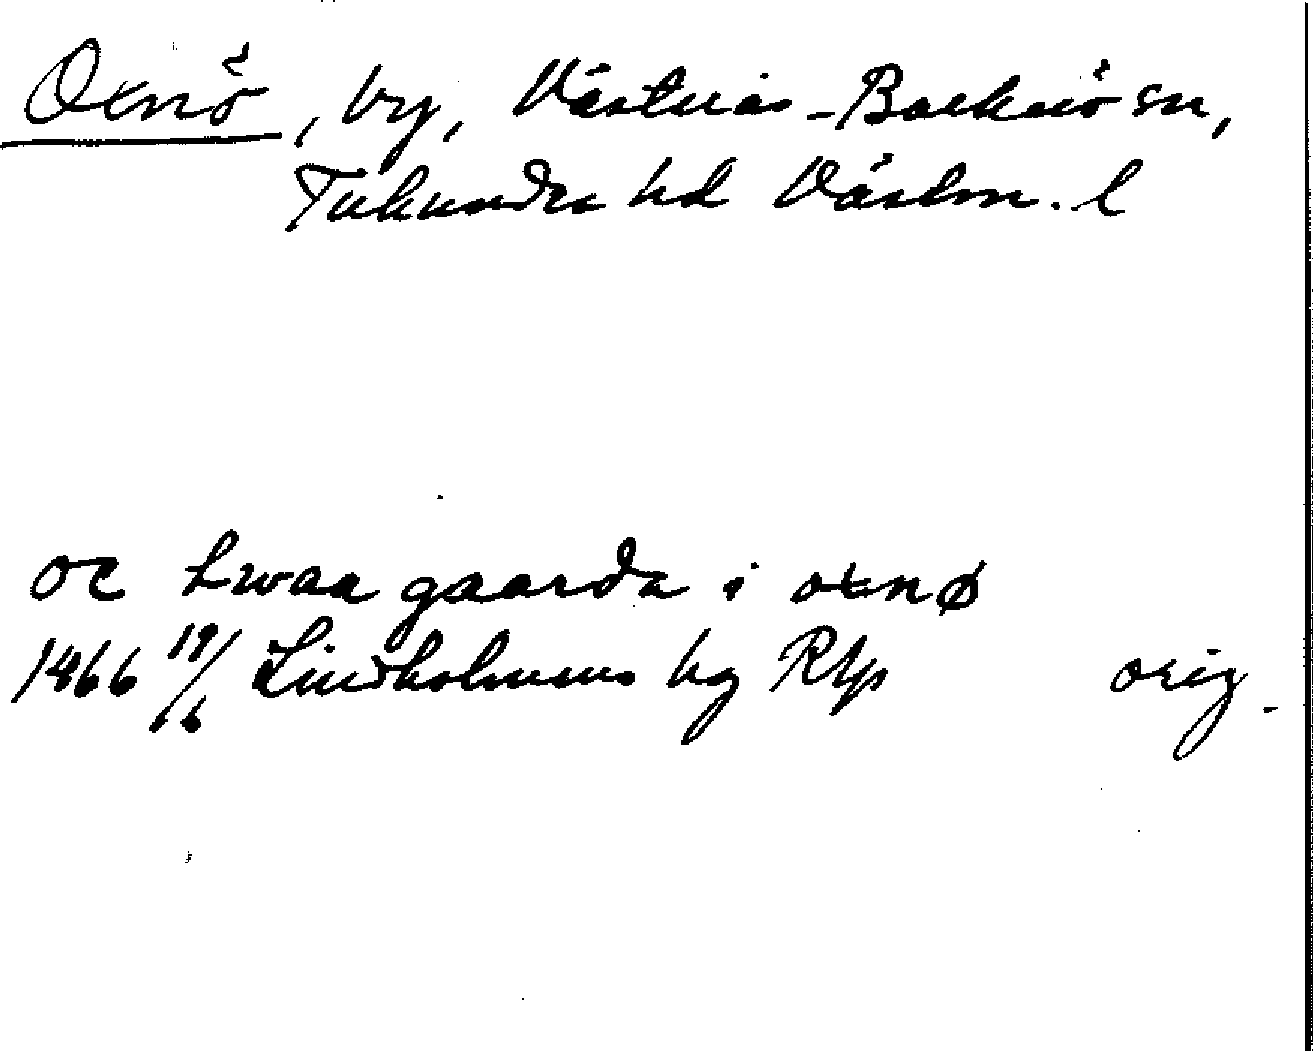 Oxnö, by, Västerås-Barkarö sn,
Tuhundra hd Västm. l
oc twaa gaarda i oxnø
1466 19/6 Lindholmens hg Rbp orig.